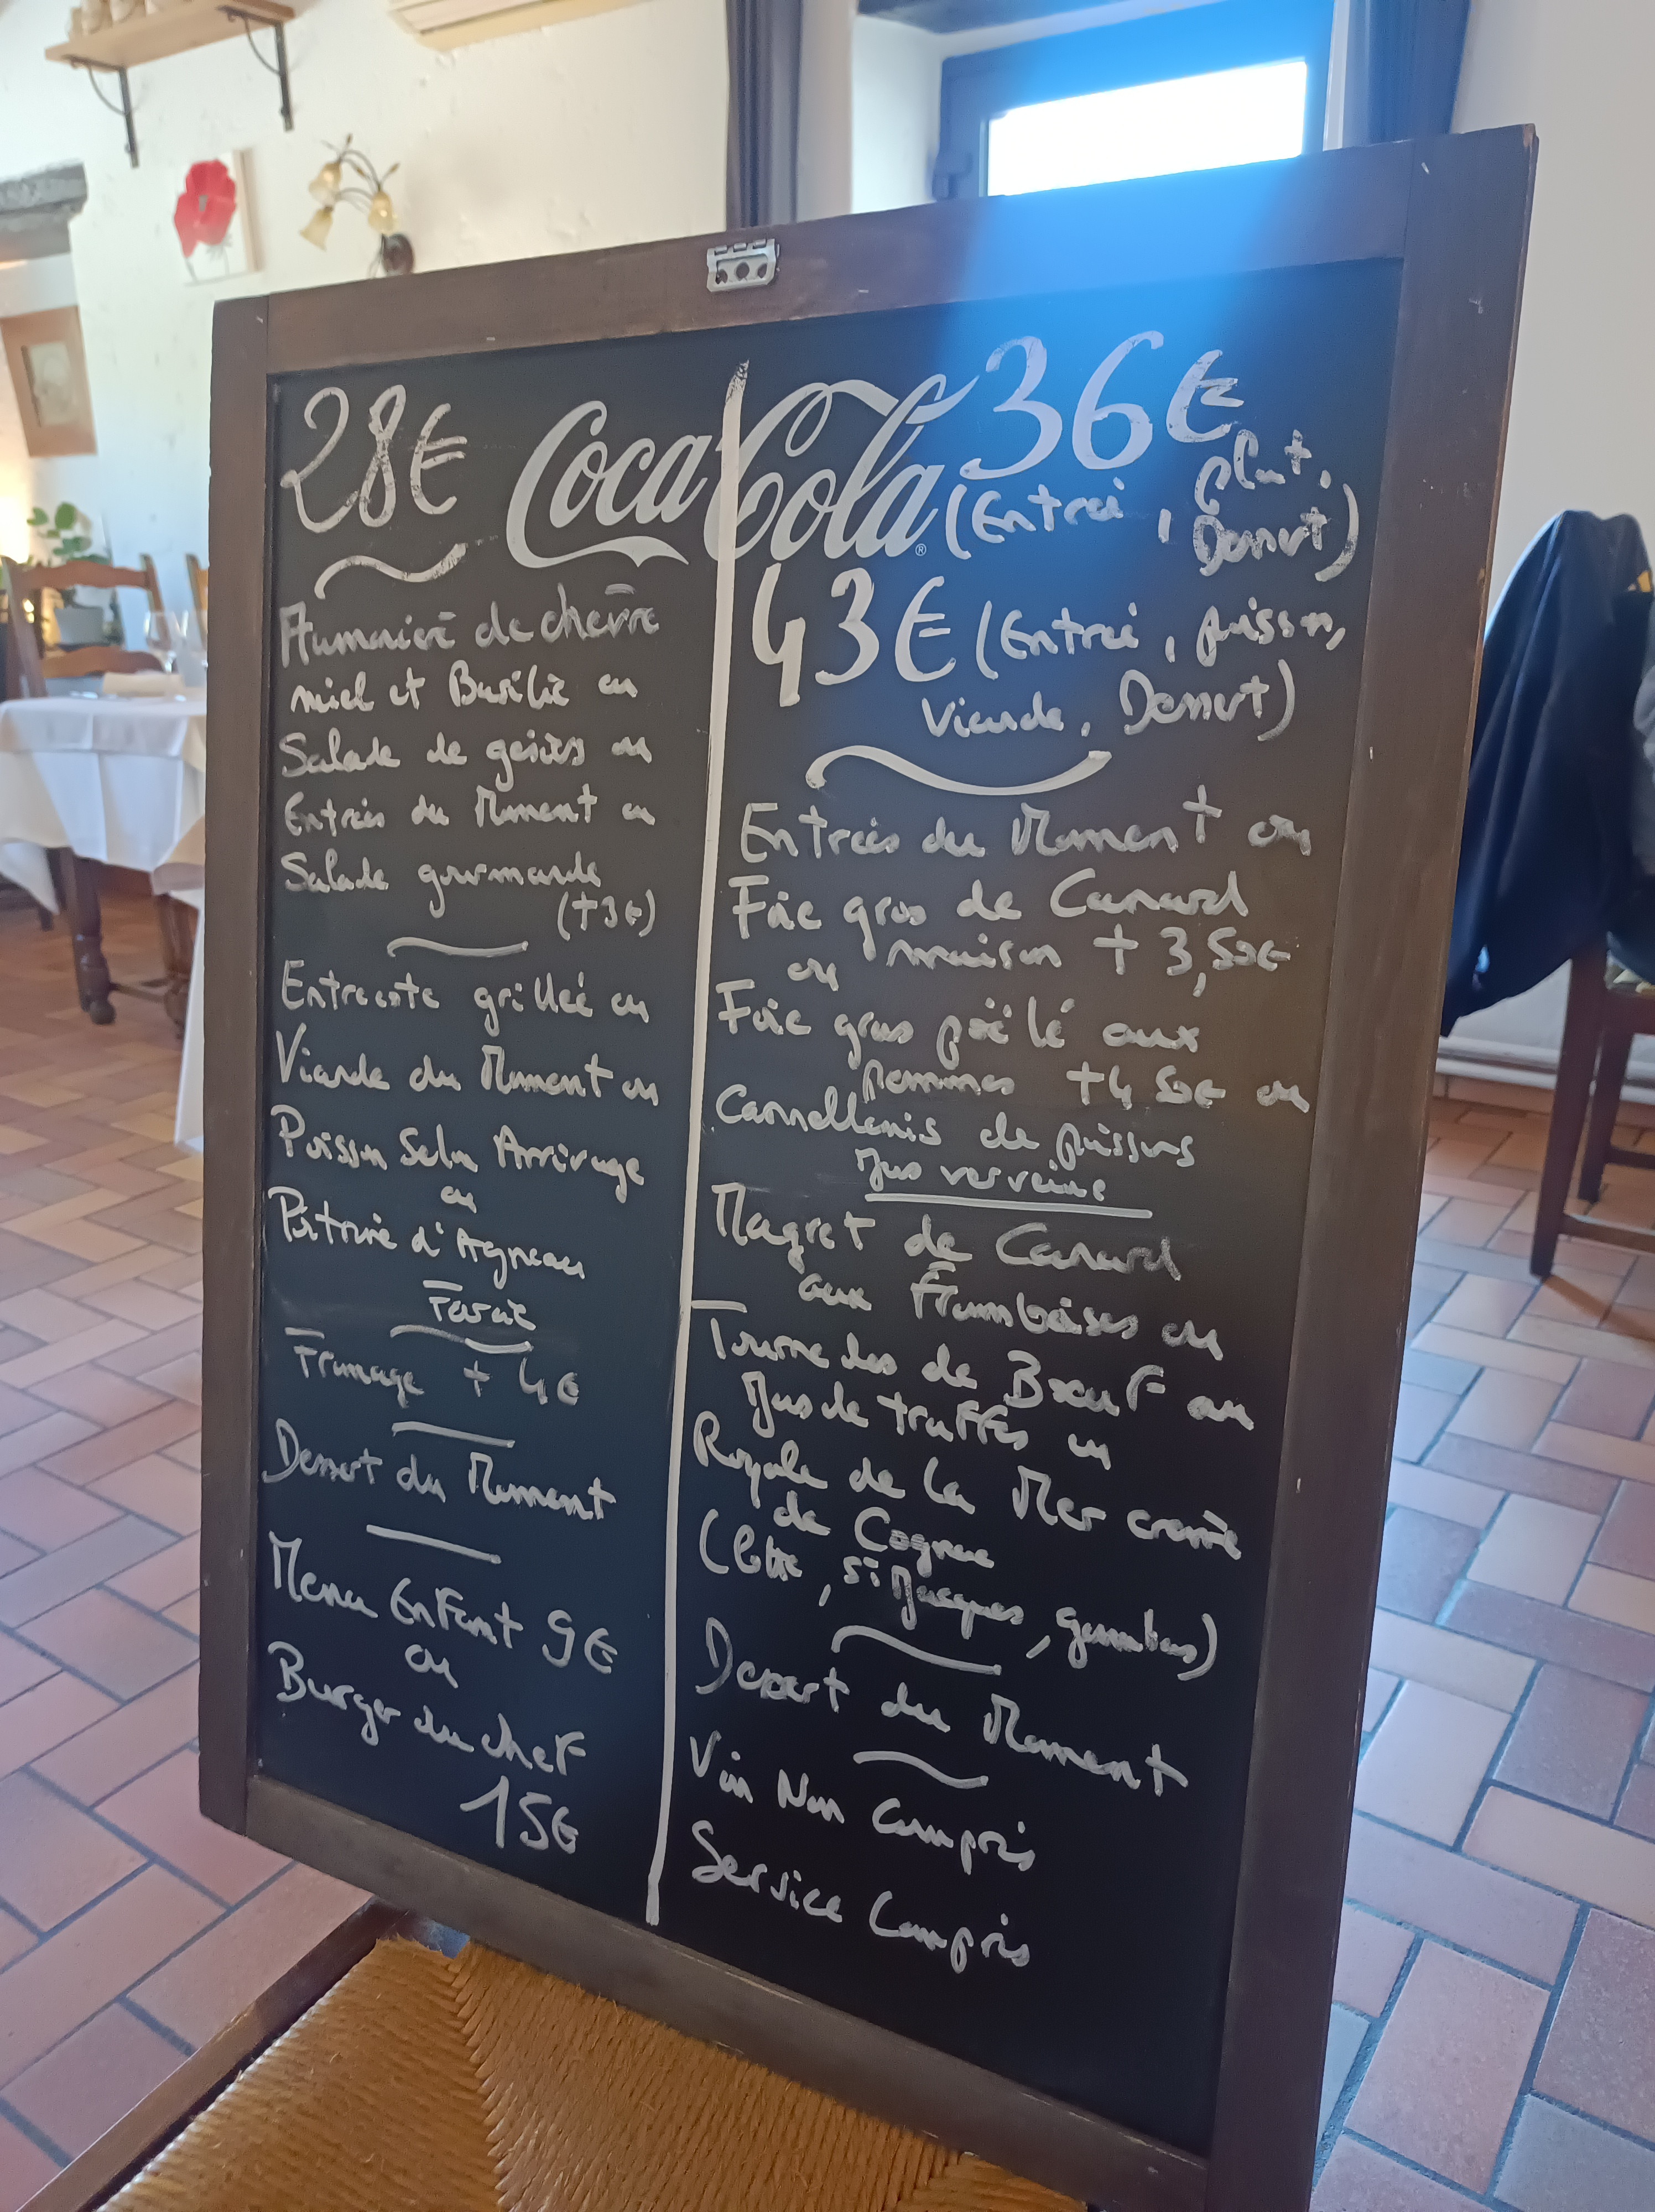 28€
Aumonière de chèvre
miel et Basilic ou
Salade de gésiers ou
Entrées du Moment ou
Salade gourmande
(+3€)
Entrecote grillée ou
Viande du Moment ou
Poisson Selon Arrivage
ou
d'Agneau
Fromage + 4€
Dessert du Moment
Menu Enfant 9€
ou
Burger du chef
15€
Coca-Cola®
36€
(Entrée, plat,
Dessert)
43€ (Entrée, poisson,
Viande, Dessert)
Entrées du Moment ou
Foie gras de Canard
maison + 3,50€
ou
Foie gras poêlé aux
pommes +4 50€ ou
Cannellonis de poissons
Jus verveine
Magret de Canard
aux Framboises ou
Tournedos de Bœuf au
Jus de truffes ou
Royale de la Mer crème
de Cognac
(lotte, St Jacques, gambas)
Dessert du Moment
Vin Non Compris
Service Compris